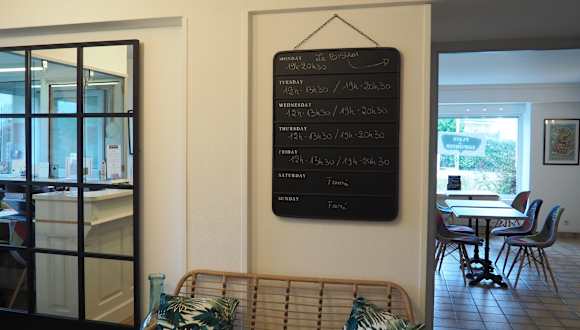 MONDAY Le Bistrot
19h-20h30
TUESDAY
12h-13h30 / 19h-20h30
WEDNESDAY
12h-13h30 / 19h-20h30
THURSDAY
12h-13h30 / 19h-20h30
FRIDAY
12h-13h30 / 19h-20h30
SATURDAY Fermé
SUNDAY Fermé